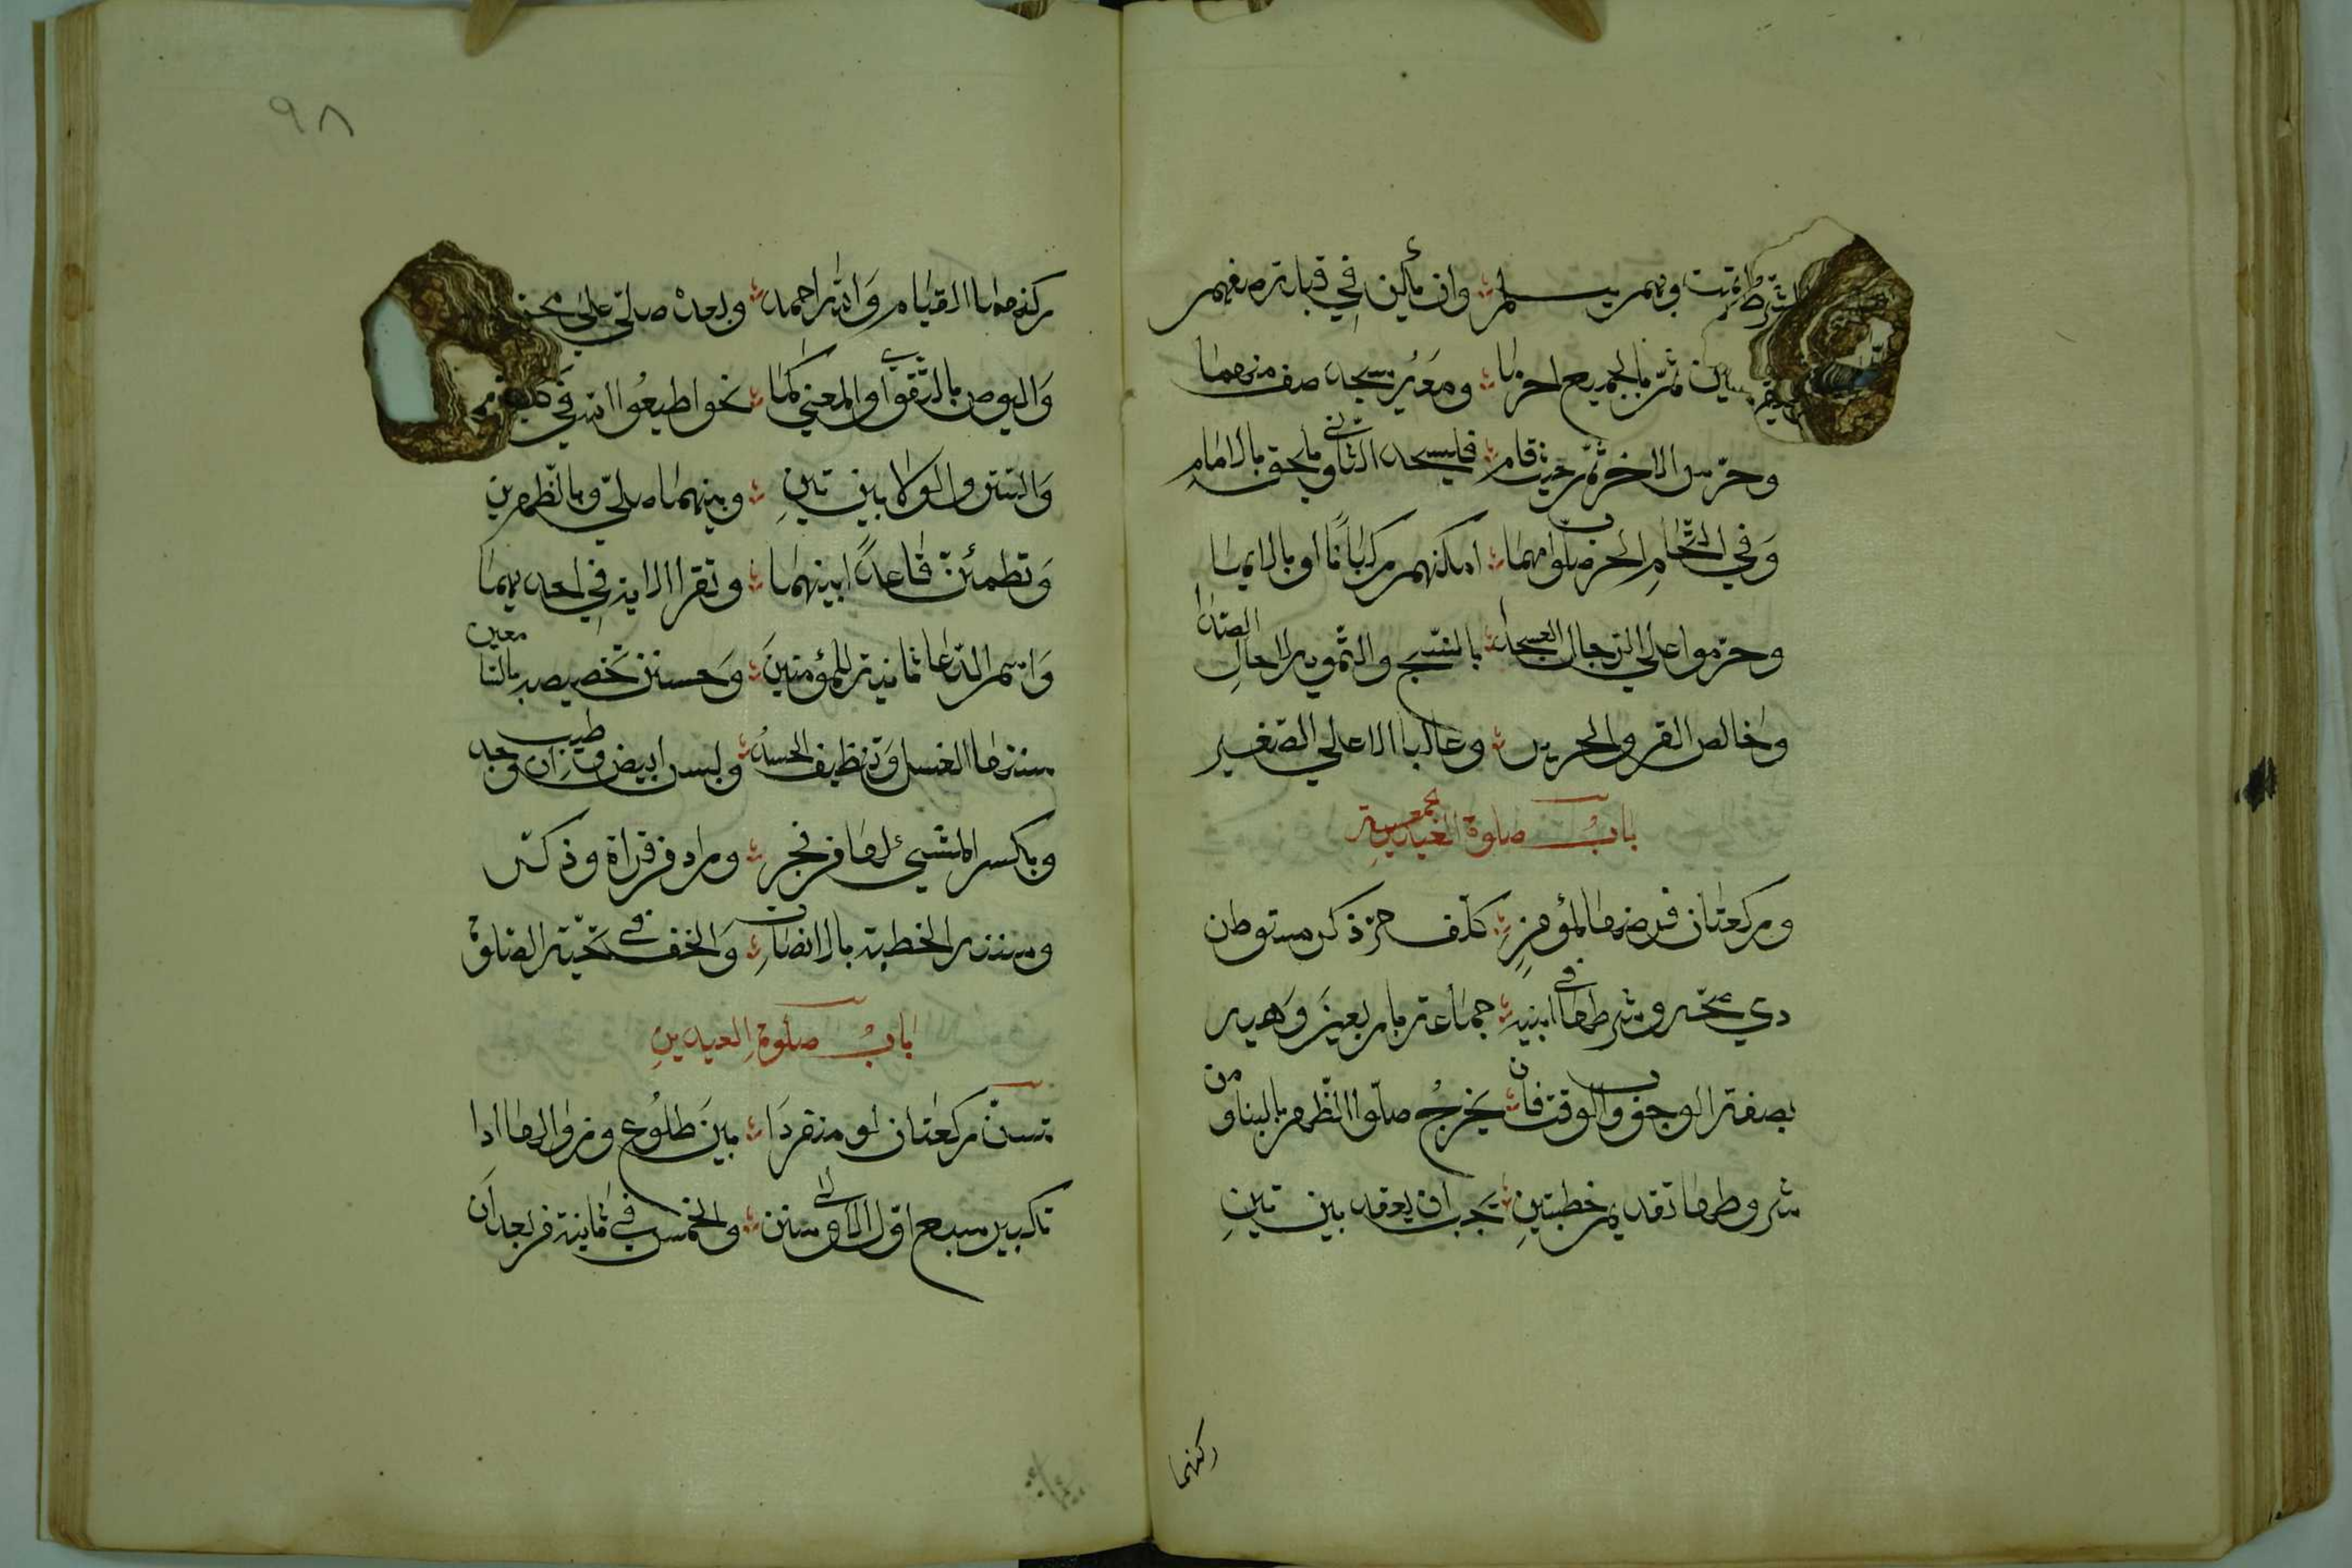 الشرط اتمت وبهم يسلم وان يكن في قبلة صفهم
صفين ثم بالجميع احرما ومعه يسجد صف منهما
وحرس الاخر ثم حيث قام فليسجد الثاني ويلحق بالامام
وفي التحام الحرب صلوا مهما امكنهم ركبانا او بالايما
وحرموا على الرجال العسجدا بالنسج والتمويه لا حال الصدا
وخالص القز والحرير وغالبا الا على الصغير
باب صلوة الجمعة
وركعتان فرضها لمؤمن كلف حر ذكر مستوطن
ذي صحة وشرطها في ابنيه جماعة باربعين وهيه
بصفة الوجوب والوقت فان يخرج صلوا الظهر بالبنا ومن
شروطها تقديم خطبتين يجب ان يقعد بين تين
ركنهما
٩٨
ركنهما القيام والله احمد وبعده صلي على محمد
واليوص بالتقوى او المعنى كما نحو اطيعوا الله في
والستر والولا بين تين وبينهما صلي وبالطهرين
وتطمئن قاعدا بينهما وتقرا الاية في احديهما
واسم الدعا ثانية للمؤمنين وحسن تخصيصه بالسامعين
سننها الغسل وتنظيف الجسد ولبس ابيض وطيب ان وجد
وبكر المشي لها من فجر وزاد من قراة وذكر
وسنة الخطبة بالانصات والخف في تحية الصلوة
باب صلوة العيدين
تسن ركعتان لو منفردا بين طلوع وزوالها ادا
تكبير سبع اول الاولى سنن والخمس في ثانية من بعد ان